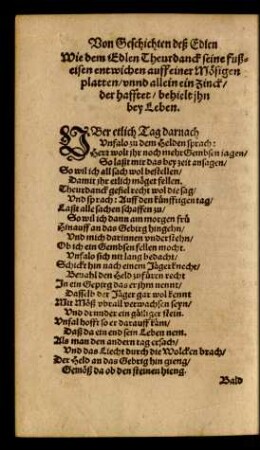 Von Geschichten deß Edlen
Wie dem Edlen Theurdanck seine fuß-
eisen entwichen auff einer Mösigen
platten/vnnd allein ein Zinck/
der hafftet/behielt jhn
bey Leben.
IBer etlich Tag darnach
Vnfalo zu dem Helden sprach:
Herr wolt jhr noch mehr Gembsen jagen/
So laßt mir das bey zeit ansagen/
So wil ich all sach wol bestellen/
Damit jhr etlich möget fellen.
Theurdanck gefiel recht wol die sag/
Vnd sprach: Auff den künfftigen tag/
Laßt alle sachen schaffen zu/
So wil ich dann am morgen frü
Hinauff an das Gebirg hingehn/
Vnd mich darinnen vnderstehn/
Ob ich ein Gembsen fellen mocht.
Vnfalo sich nit lang bedacht/
Schickt hin nach einem Jägerknecht/
Befahl den Held zufürn recht
In ein Gepirg das er jhm nennt/
Dasselb der Jäger gar wol kennt
Mit Möß vberall verwachsen seyn/
Vnd drunder ein gäliger stein.
Vnfal hofft so er darauff käm/
Daß da ein end sein Leben nem.
Als man den andern tag ersach/
Vnd das Liecht durch die Wolcken brach/
Der Held an das Gebirg hin gieng/
Gemöß da ob den steinen hieng.
Bald